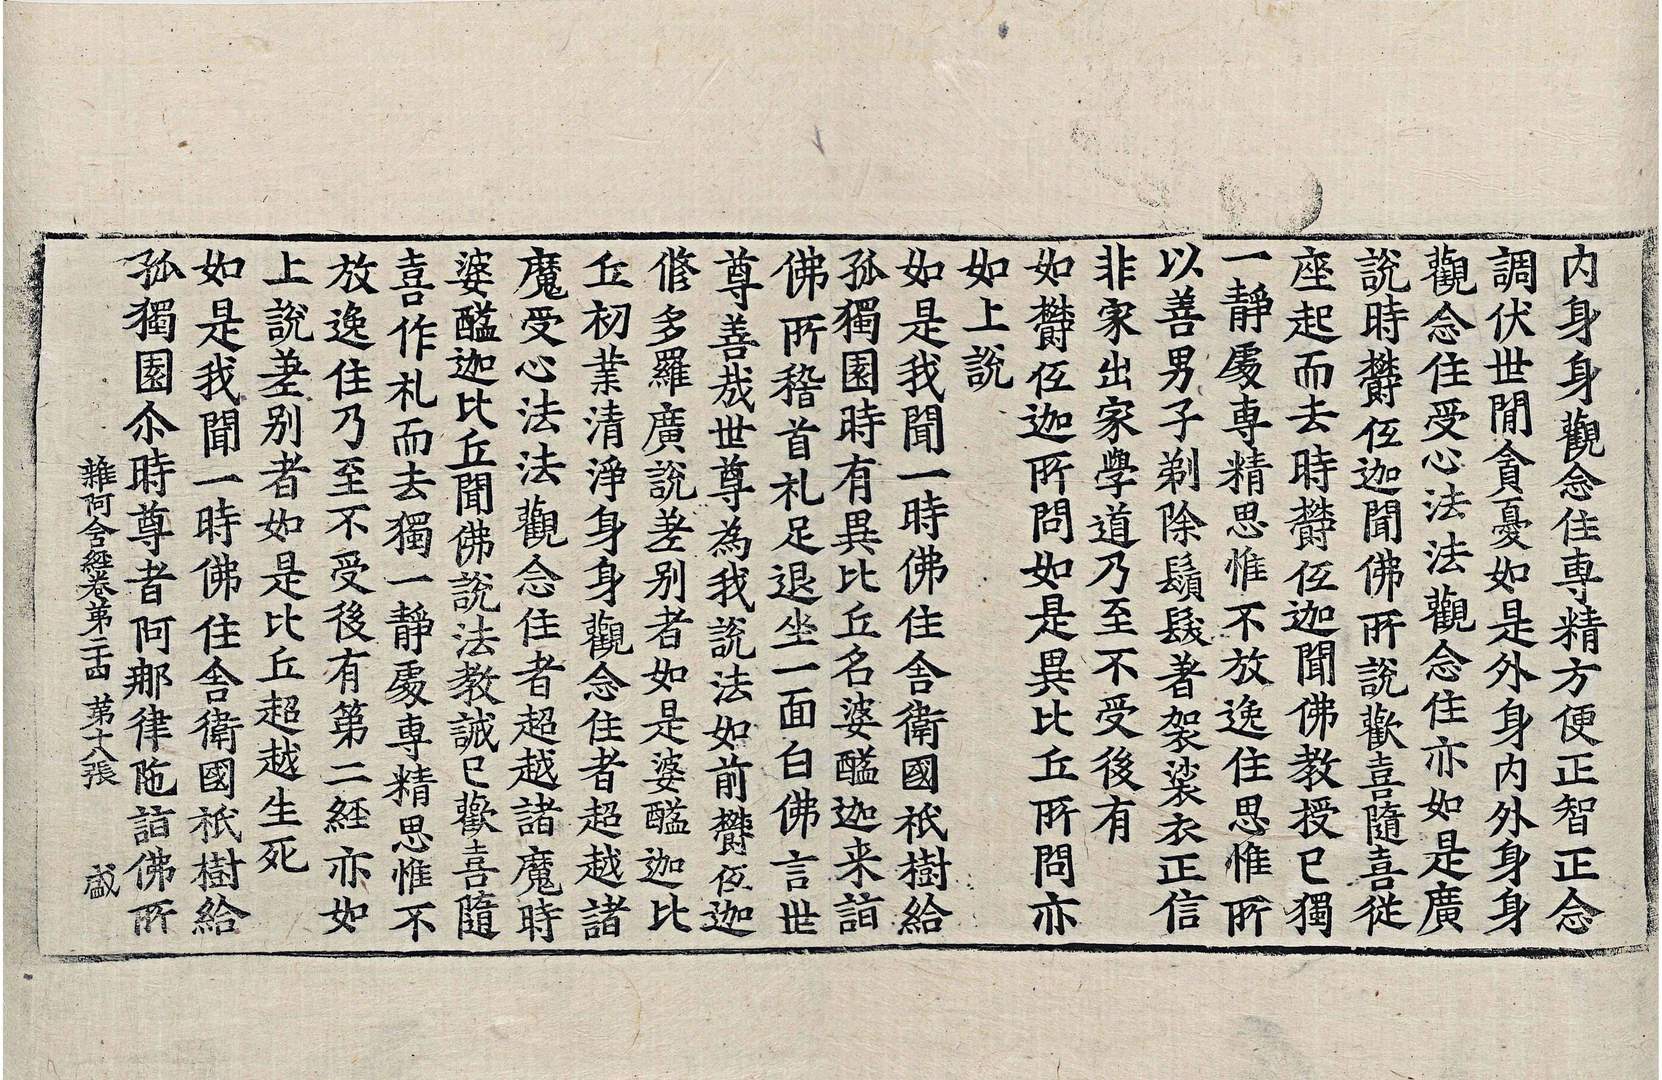 内身身觀念住專精方便正智正念
調伏世閒貪憂如是外身内外身身
觀念住受心法法觀念住亦如是廣
說時欝伍迦聞佛所說歡喜隨喜從
座起而去時欝伍迦聞佛教授已獨
一靜處專精思惟不放逸住思惟所
以善男子剃除鬚髮著袈裟衣正信
非家出家學道乃至不受後有
如欝伍迦所問如是異比丘所問亦
如上說
如是我聞一時佛住舍衛國祇樹給
孤獨園時有異比丘名婆醯迦来詣
佛所稽首礼足退坐一面白佛言世
尊善哉世尊為我說法如前欝伍迦
脩多羅廣說差别者如是婆醯迦比
丘初業清淨身身觀念住者超越諸
魔受心法法觀念住者超越諸魔時
婆醯迦比丘聞佛說法教誡已歡喜隨
喜作礼而去獨一靜處專精思惟不
放逸住乃至不受後有第二經亦如
上說差别者如是比丘超越生死
如是我聞一時佛住舍衛國祇樹給
孤獨園尒時尊者阿那律陁詣佛所
雜阿含經卷第二十四 第十八張 盛